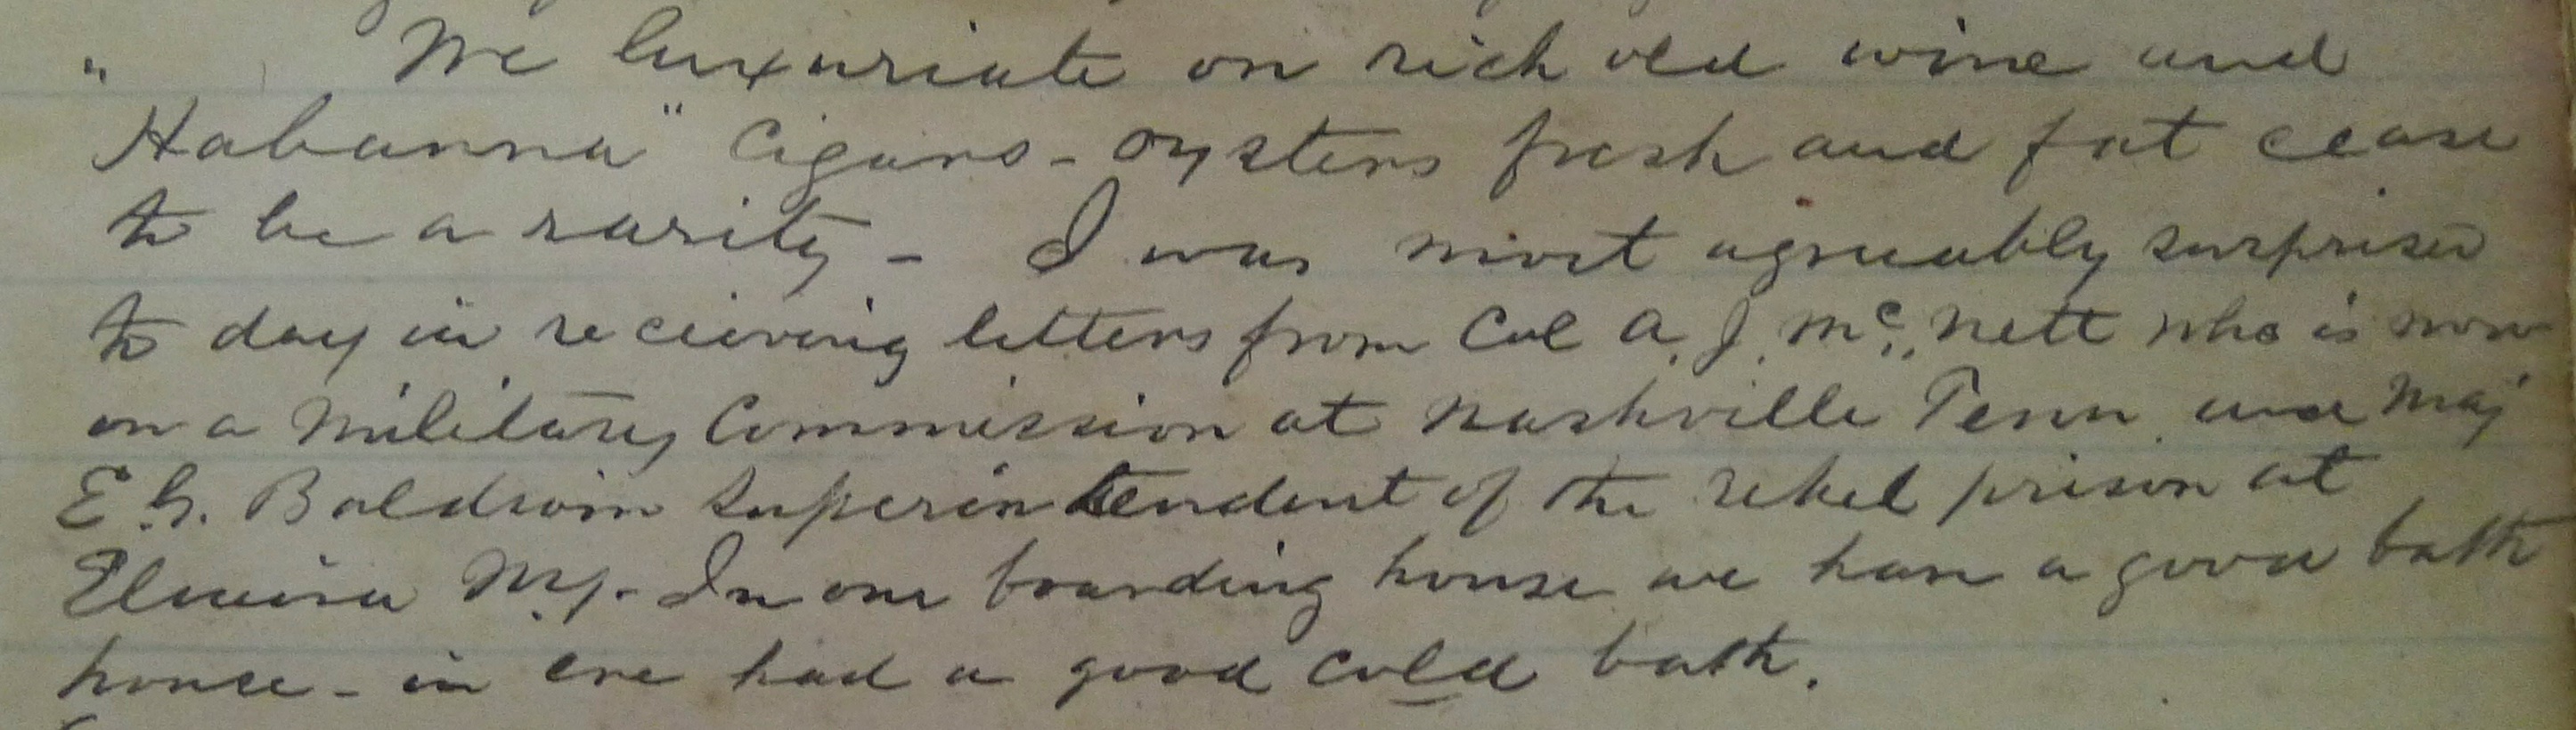 " We luxuriate on rich old wine and
Habanna" Cigars - oysters fresh and fat cease
to be a rarity - I was most agreeably surprised
to day in recieving letters from Col A. J. Mc. Nett who is now
on a Military Commission at Nashville Tenn. and Maj
E. G. Baldwin Superintendent of the rebel prison at
Elmira N.Y. - In our boarding house we have a good bath
house - in eve had a good cold bath.